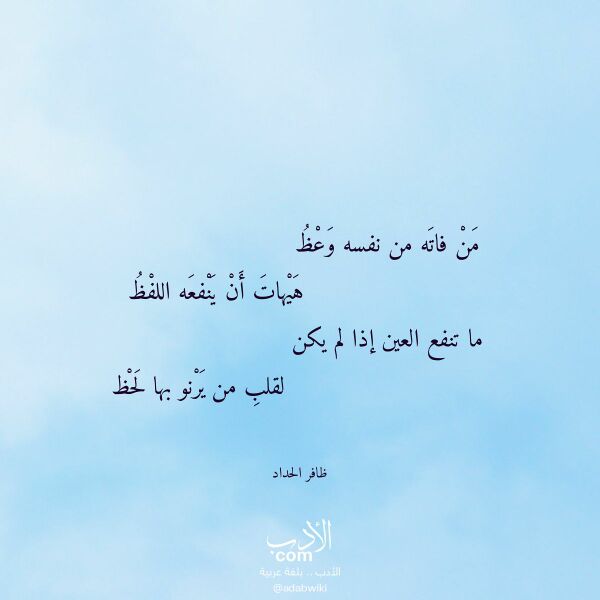 مَنْ فاتَه من نفسه وَعْظُ
هَيْهاتَ أَنْ يَنْفعَه اللفْظُ
ما تنفع العين إذا لم يكن
لقلبِ من يَرْنو بها لَحْظ
ظافر الحداد
الأدب
com
الأدب .. بلغة عربية
@adabwiki